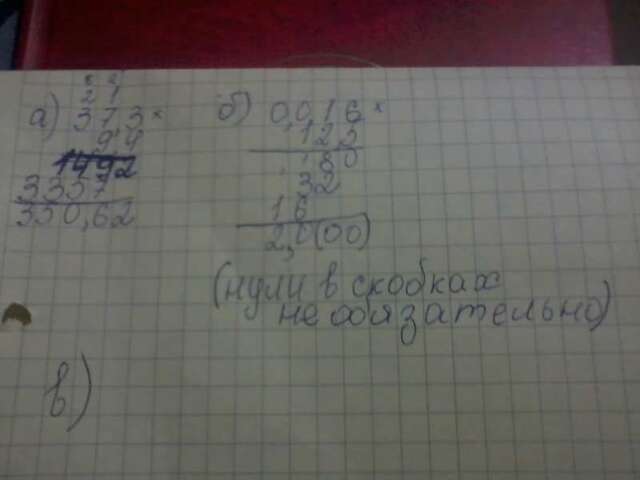 3 2
2 1
а) 373 ×
9,4
1492
3357
350,62
б) 0,016 ×
125
80
32
16
2,0(00)
(нули в скобках
не обязательно)
в)